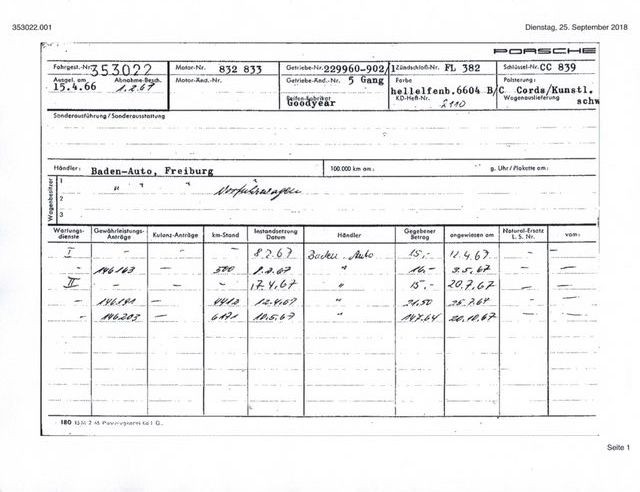 353022.001 Dienstag, 25. September 2018
PORSCHE
Fahrgest.-Nr. 353022 Motor-Nr. 832 833 Getriebe-Nr. 229960-902/1 Zündschloß-Nr. FL 382 Schlüssel-Nr. CC 839
Ausgel. am Abnahme-Besch. Motor-Änd.-Nr. Getriebe-Änd.-Nr. 5 Gang Farbe Polsterung:
15.4.66 1.2.67 Reifen-Fabrikat hellelfenb.6604 B/C Cords/Kunstl.
Goodyear KD-Heft-Nr. 2110 Wagenauslieferung schw
Sonderausführung / Sonderausstattung
Händler: Baden-Auto, Freiburg 100.000 km am: g. Uhr / Plakette am:
Wagenbesitzer
1 " " " Vorführwagen
2
3
Wartungs-dienste Gewährleistungs-Anträge Kulanz-Anträge km-Stand Instandsetzung Datum Händler Gegebener Betrag angewiesen am Natural-Ersatz L. S. Nr. vom:
I - - - 8.2.67 Baden-Auto 15,- 12.4.67
- 146163 - 500 8.2.67 " 16.- 3.5.67 - -
II - - - 17.4.67 " 15.- 20.7.67 - -
- 146191 - 4412 12.4.67 " 21.50 25.7.67 - -
- 146203 - 6171 10.5.67 " 147.64 20.10.67 - -
180
Seite 1